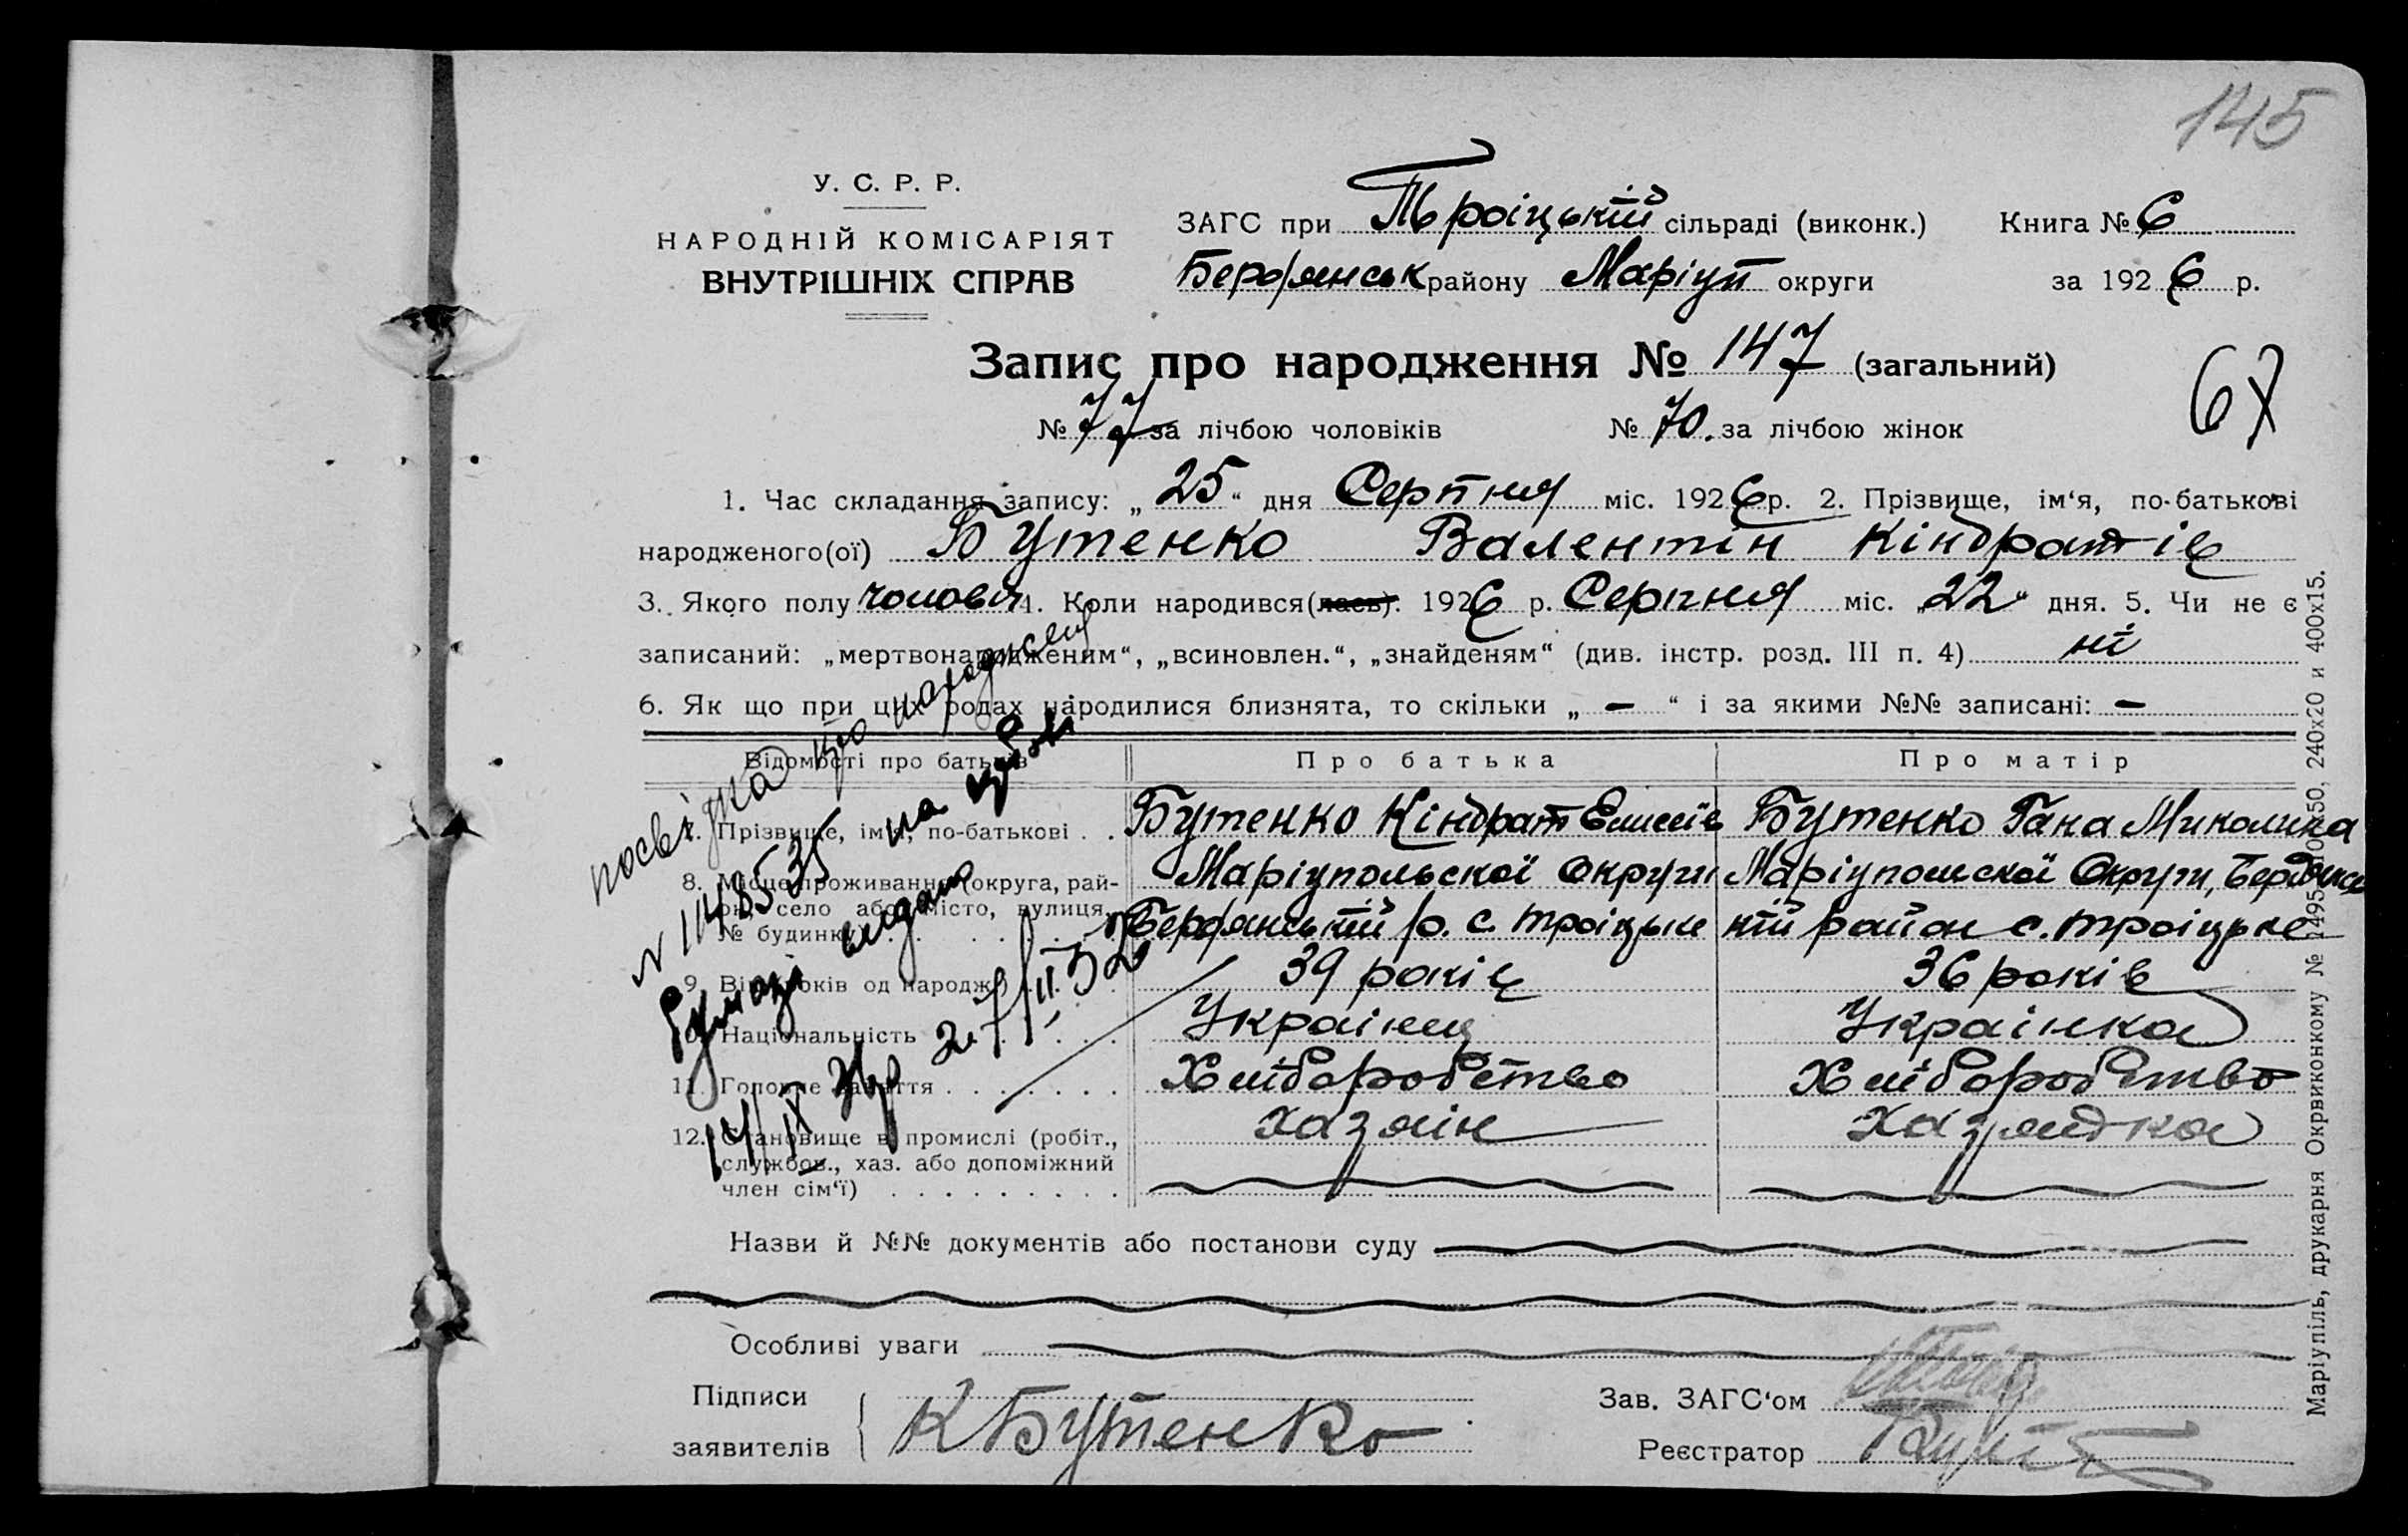 145
У. С. Р. Р.
НАРОДНІЙ КОМІСАРІЯТ
ВНУТРІШНІХ СПРАВ
ЗАГС при Троіцькій сільраді (виконк.) Книга № 6
Бердянськ району Маріуп округи за 1926 р.
Запис про народження № 147 (загальний)
67
№ 77 за лічбою чоловіків № 70. за лічбою жінок
1. Час складання запису: „ 25 “ дня Серпня міс. 1926 р. 2. Прізвище, ім‘я, по-батькові
народженого(ої) Бутенко Валентін Кіндратів
3. Якого полу чолові 4. Коли народився(лась). 1926 р. Серпня міс. „22“ дня. 5. Чи не є
записаний: „мертвонародженим“, „всиновлен.“, „знайденям“ (див. інстр. розд. III п. 4) ні
6. Як що при цих родах народилися близнята, то скільки „ — “ і за якими №№ записані: —
Відомості про батьків Про батька Про матір
7. Прізвище, ім‘я, по-батькові . . Бутенко Кіндрат Елисеїв Бутенко Гана Миколина
8. Місце проживання (округа, рай- Маріупольскої Округи Маріупольскої Округи, Бердянсь
он, село або місто, вулиця, Бердянській р. с. Троіцьке кій район с. Троіцьке
№ будинку)
9. Вік (років од народж.) 39 років 36 років
10. Національність Украінец Украінка
11. Головне заняття Хліборобство Хліборобство
12. Становище в промислі (робіт., хазяін хазяйка
службов., хаз. або допоміжний
член сім‘ї)
посвідка про народжен
N 1148535 на
бумазі видано
14/IX 27/II 32
Назви й №№ документів або постанови суду
Особливі уваги
Підписи
заявителів К Бутенко
Зав. ЗАГС‘ом
Реєстратор
Маріупіль, друкарня Окрвиконкому № 240x20 и 400x15.